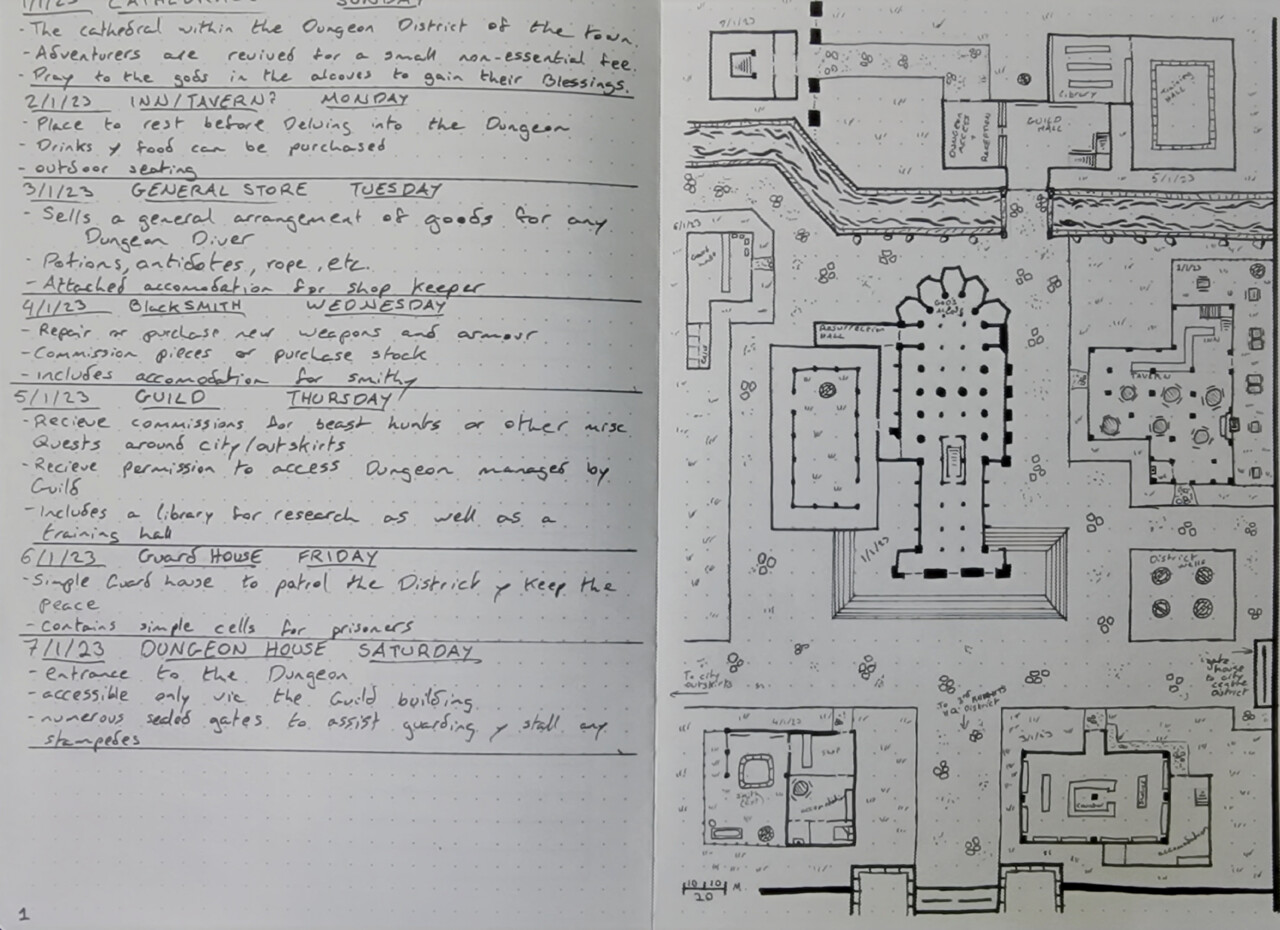 1/1/23 CATHEDRAL SUNDAY
- The cathedral within the Dungeon District of the town.
- Adventurers are revived for a small non-essential fee.
- Pray to the gods in the alcoves to gain their Blessings.
2/1/23 INN/TAVERN? MONDAY
- Place to rest before Delving into the Dungeon
- Drinks y food can be purchased
- outdoor seating
3/1/23 GENERAL STORE TUESDAY
- Sells a general arrangement of goods for any
Dungeon Diver
- Potions, antidotes, rope, etc.
- Attached accomodation for shop keeper
4/1/23 BlackSMITH WEDNESDAY
- Repair or purchase new weapons and armour
- Commission pieces or purchase stock
- includes accomodation for smithy
5/1/23 GUILD THURSDAY
- Recieve commissions for beast hunts or other misc.
Quests around city/outskirts
- Recieve permission to access Dungeon managed by
Guild
- Includes a library for research as well as a
training hall
6/1/23 Guard HOUSE FRIDAY
- Simple Guard house to patrol the District y Keep the
peace
- contains simple cells for prisoners
7/1/23 DUNGEON HOUSE SATURDAY
- entrance to the Dungeon
- accessible only via the Guild building
- numerous sealed gates to assist guarding y stall any
stampedes
1
7/1/23
LIBRARY
TRAINING
HALL
GUILD
HALL
DUNGEON
ACCESS
+
RECEPTION
5/1/23
6/1/23
Guard
House
2/1/23
GODS
ALCOVES
RESURRECTION
HALL
INN
TAVERN
1/1/23
District
Wells
To city
outskirts
gate
house
to city
centre
District
District
4/1/23
Shop
Smith
accomodation
3/1/23
Counter
accomodation
10 10 M.
20